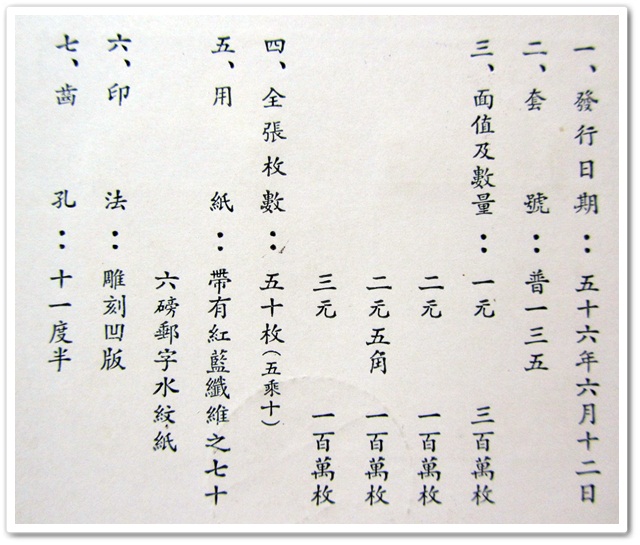 一、發行日期：五十六年六月十二日
二、套號：普一三五
三、面值及數量：一元 三百萬枚
二元 一百萬枚
二元五角 一百萬枚
三元 一百萬枚
四、全張枚數：五十枚（五乘十）
五、用紙：帶有紅藍纖維之七十
六磅郵字水紋紙
六、印法：雕刻凹版
七、齒孔：十一度半